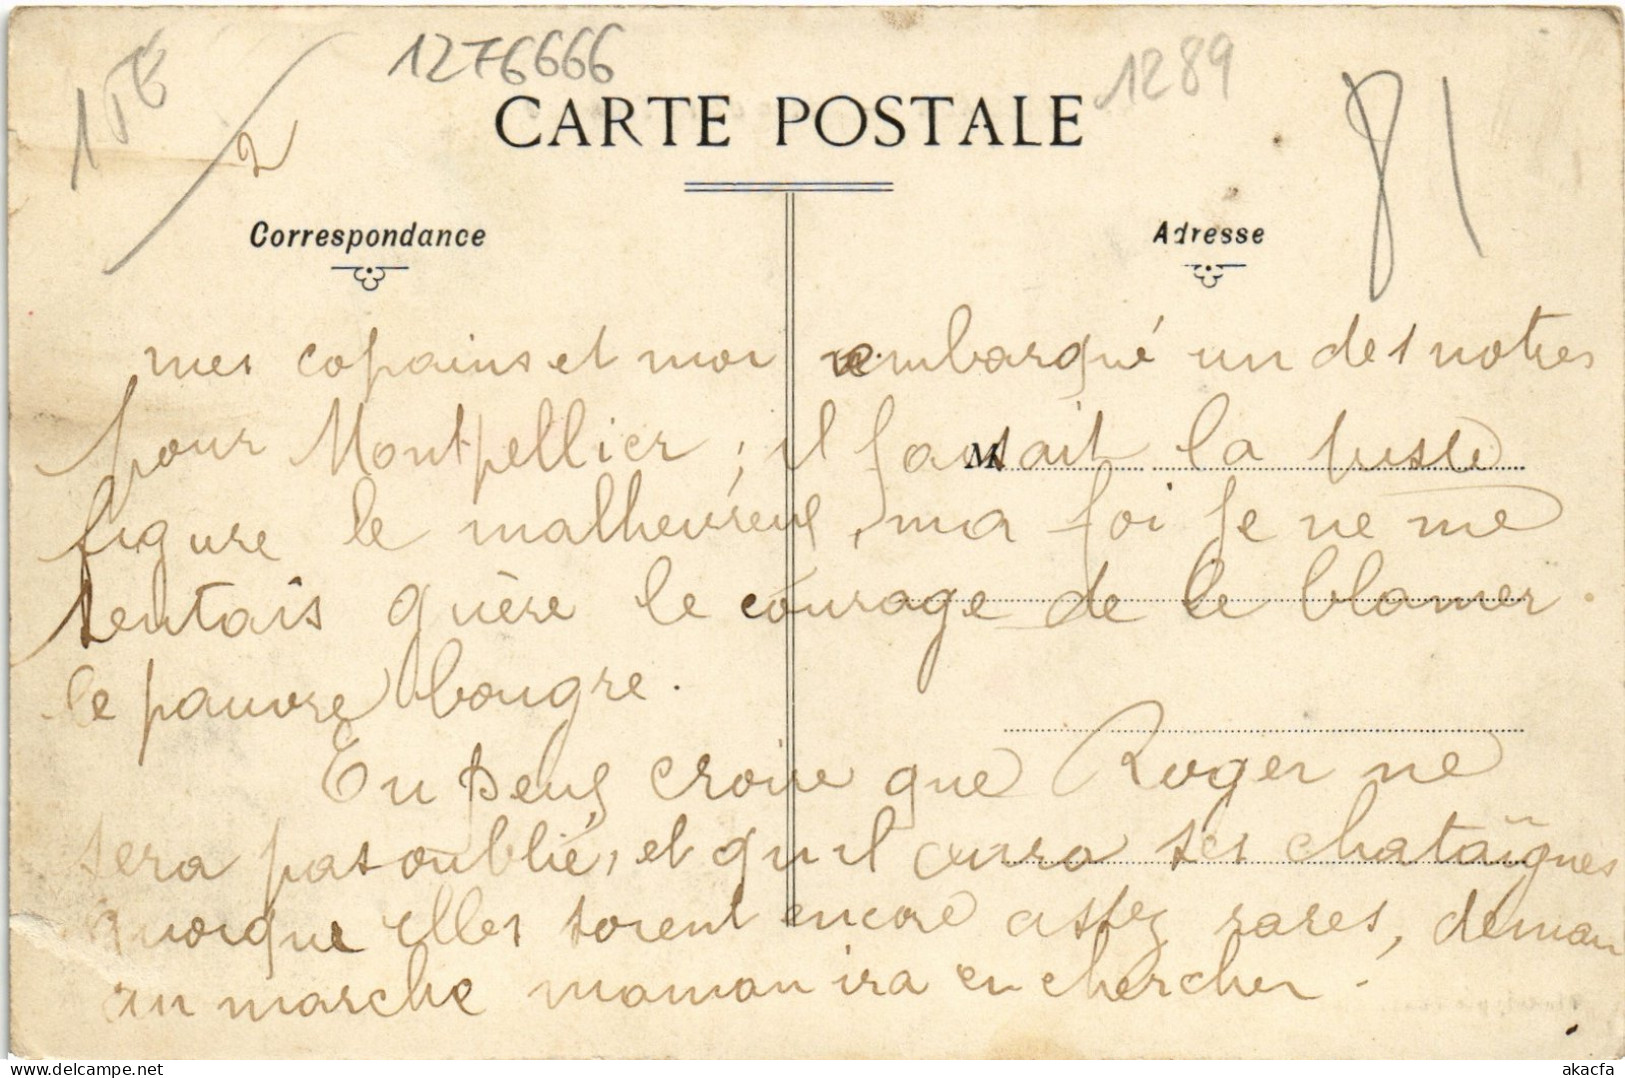 1276666
1289
81
2
CARTE POSTALE
Correspondance
Adresse
M
mes copains et moi embarqué un des notres
pour Montpellier ; il faisait la triste
figure le malheureux, ma foi je ne me
sentais guère le courage de le blamer.
le pauvre bougre.
Tu peux croire que Roger ne
sera pas oublié, et qu'il aura ses chataîgnes
quoique elles soient encore assez rares, demain
au marché maman ira en chercher.
akacfa